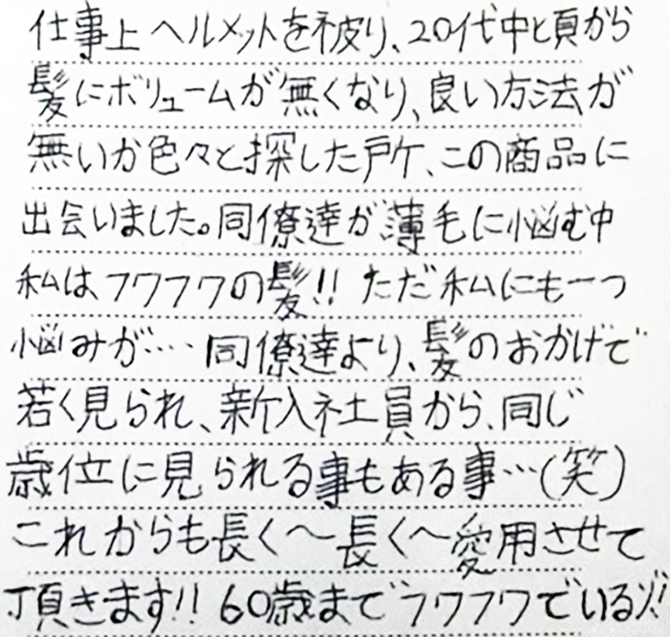 仕事上ヘルメットを被り、20代中と頃から
髪にボリュームが無くなり、良い方法が
無いか色々と探した所、この商品に
出会いました。同僚達が薄毛に悩む中
私は、フワフワの髪!! ただ私にも一つ
悩みが…. 同僚達より、髪のおかげで
若く見られ、新入社員から、同じ
歳位に見られる事もある事…(笑)
これからも長く〜長く〜愛用させて
頂きます!! 60歳までフワフワでいるゾ!!